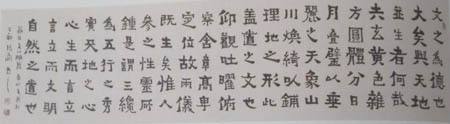 文之為德也
大矣與天地
並生者何哉
夫玄黃色雜
方圓體分日
月疊璧以垂
麗天之象山
川煥綺以鋪
理地之形此
蓋道之文也
仰觀吐曜俯
察含章高卑
定位故兩儀
既生矣惟人
參之性靈所
鍾是謂三纔
為五行之秀
實天地之心
心生而言立
言立而文明
自然之道也